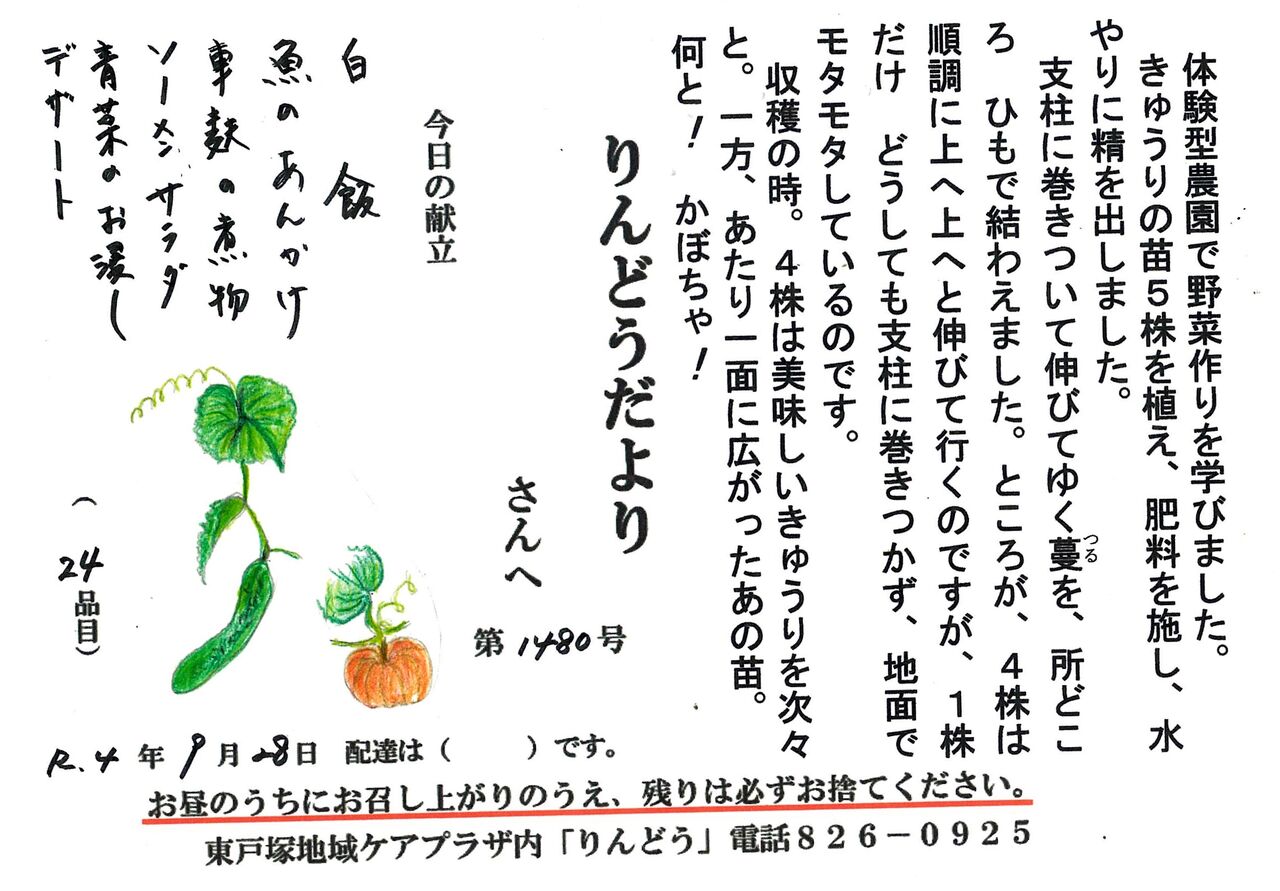 体験型農園で野菜作りを学びました。
きゅうりの苗5株を植え、肥料を施し、水
やりに精を出しました。
支柱に巻きついて伸びてゆく蔓を、所どこ
つる
ろ ひもで結わえました。ところが、4株は
順調に上へ上へと伸びて行くのですが、1株
だけ どうしても支柱に巻きつかず、地面で
モタモタしているのです。
収穫の時。4株は美味しいきゅうりを次々
と。一方、あたり一面に広がったあの苗。
何と! かぼちゃ!
りんどうだより
さんへ
第1480号
今日の献立
白飯
魚のあんかけ
車麩の煮物
ソーメンサラダ
青菜のお浸し
デザート
(24品目)
R.4年9月28日 配達は( )です。
お昼のうちにお召し上がりのうえ、残りは必ずお捨てください。
東戸塚地域ケアプラザ内「りんどう」電話826-0925